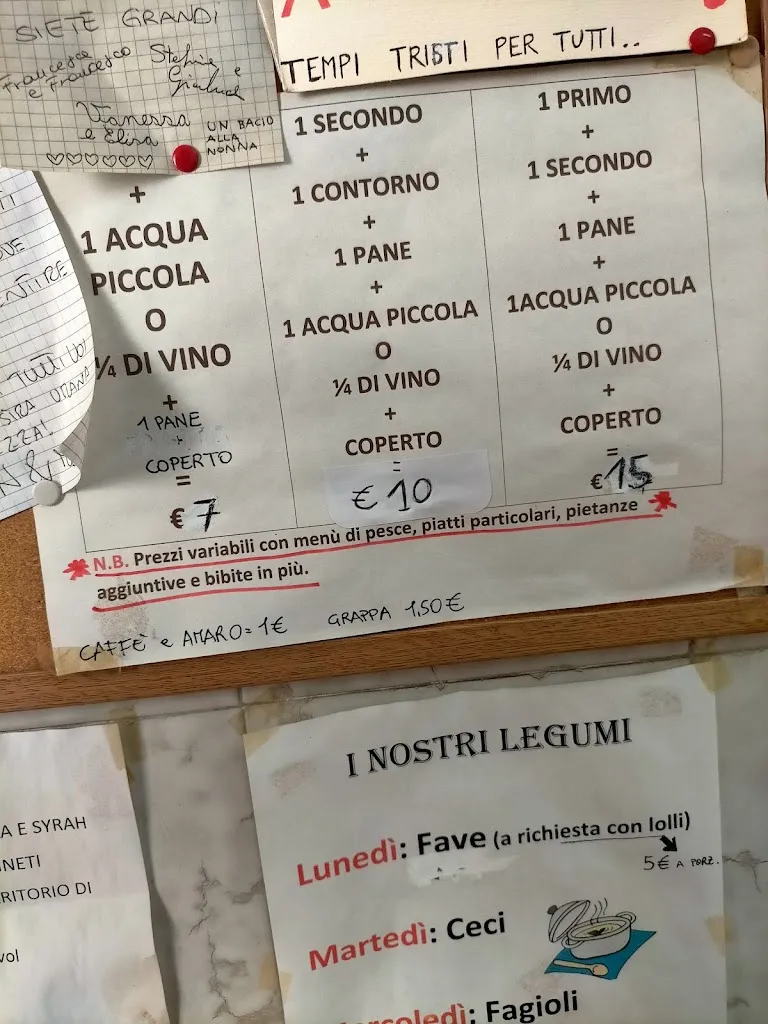 SIETE GRANDI
Francesca e Francesco
Stefania e
Vanessa e Elisa
UN BACIO
ALLA
NONNA
TEMPI TRISTI PER TUTTI..
+
1 ACQUA
PICCOLA
O
¼ DI VINO
+
1 PANE
+
COPERTO
=
€ 7
1 SECONDO
+
1 CONTORNO
+
1 PANE
+
1 ACQUA PICCOLA
O
¼ DI VINO
+
COPERTO
=
€ 10
1 PRIMO
+
1 SECONDO
+
1 PANE
+
1ACQUA PICCOLA
O
¼ DI VINO
+
COPERTO
=
€ 15
N.B. Prezzi variabili con menù di pesce, piatti particolari, pietanze
aggiuntive e bibite in più.
CAFFÈ e AMARO = 1€ GRAPPA 1,50€
ENTIRE
TUTTI VOI
A E SYRAH
NETI
RITORIO DI
vol
I NOSTRI LEGUMI
Lunedì: Fave (a richiesta con lolli)
5€ A PORZ.
Martedì: Ceci
Mercoledì: Fagioli